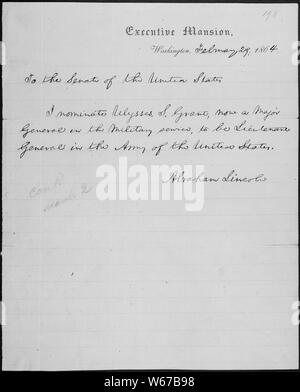 198
Executive Mansion,
Washington, February 29, 1864
To the Senate of the United States
I nominate Ulysses S. Grant, now a Major
General in the Military service, to be Lieutenant
General in the Army of the United States.
Abraham Lincoln
March 2
alamy
Image ID: W67B98
www.alamy.com